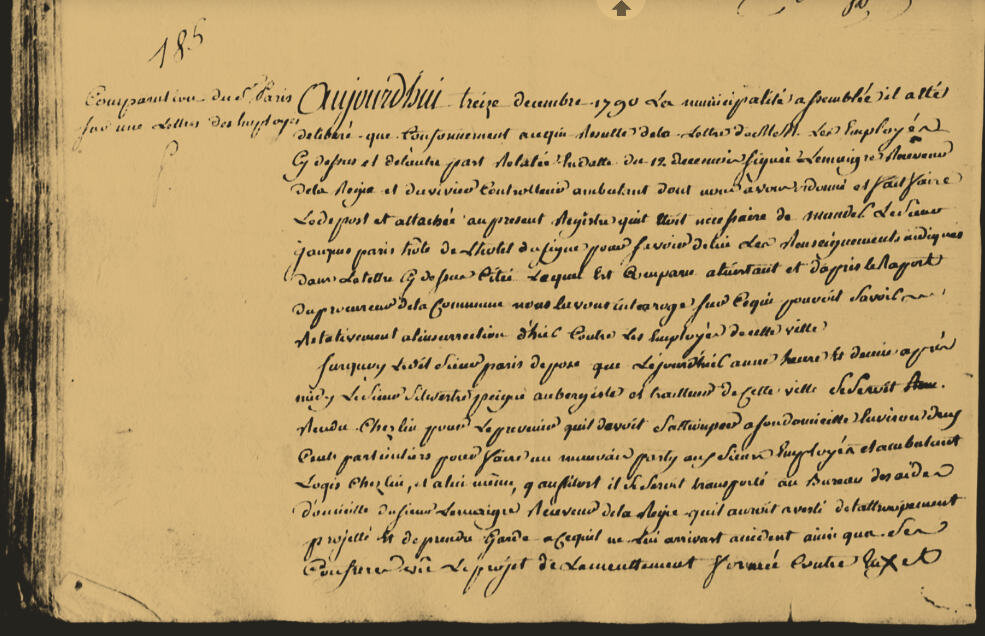 185
Comparution du Sr. Paris
sur une Lettre des Employés
Aujourd'hui treize decembre 1790 La municipalité assemblée il a eté
deliberé que Conformement a ce qui Resulte de la Lettre de M.M. Les Employés
Cy dessus et de lautre part Relatée En datte du 12 decembre signée Lemaigre Receveur
de la Regie et duvivier Controlleur ambulant dont nous avons ordonné et fait faire
Le depost et attachée au present Registre quil Etoit necessaire de mander Le Sieur
jacques paris hôte de Lhotel du Cigne pour savoir de lui Les Renseignements indiqués
dans La lettre Cy dessus Citée Lequel Est Comparu a linstant et d'après le Raport
du procureur de la Commune nous lavons intéroge sur Ce qui pouvoit savoir
Relativement a linsurrection d'hier Contre Les Employés de cette ville
surquoy Ledit Sieur paris depose que Le jour d'hier a une heure Et demie après
midy Le Sieur Silvestre peigné aubergiste et traitteur de Cette ville Se Seroit
Rendu Chez lui pour Le prevenir quil devoit Sattrouper a son domicille Environ deux
Cents particuliers pour faire un mauvais party aux Sieurs Employés et ambulant
Logés Chez lui, et a lui même, qu aussitost il Se Seroit transporté au Bureau des aides
domicille du sieur Lemaigre Receveur de la Regie quil auroit averti de lattroupement
projetté Et de prendre Garde a Ce quil ne Lui arrivat accident ainsi qua Ses
Confreres vû Le projet de Lameuttement formée Contre Eux et